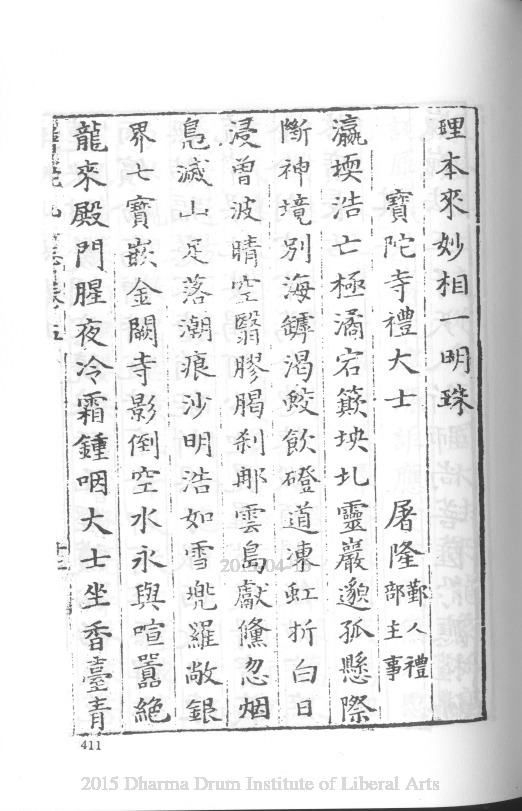 理本來妙相一明珠
寶陀寺禮大士 屠隆 鄞人禮部主事
瀛堧浩亡極潏宕簸坱圠靈巖邈孤懸際
斷神境別海罅渴蛟飲磴道凍虹折白日
浸曾波晴空翳膠膓刹那雲島獻儵忽烟
鳧滅山足落潮痕沙明浩如雪兠羅敞銀
界七寶嵌金闕寺影倒空水永與喧囂絶
龍來殿門腥夜冷霜鍾咽大士坐香臺青
411
2015 Dharma Drum Institute of Liberal Arts